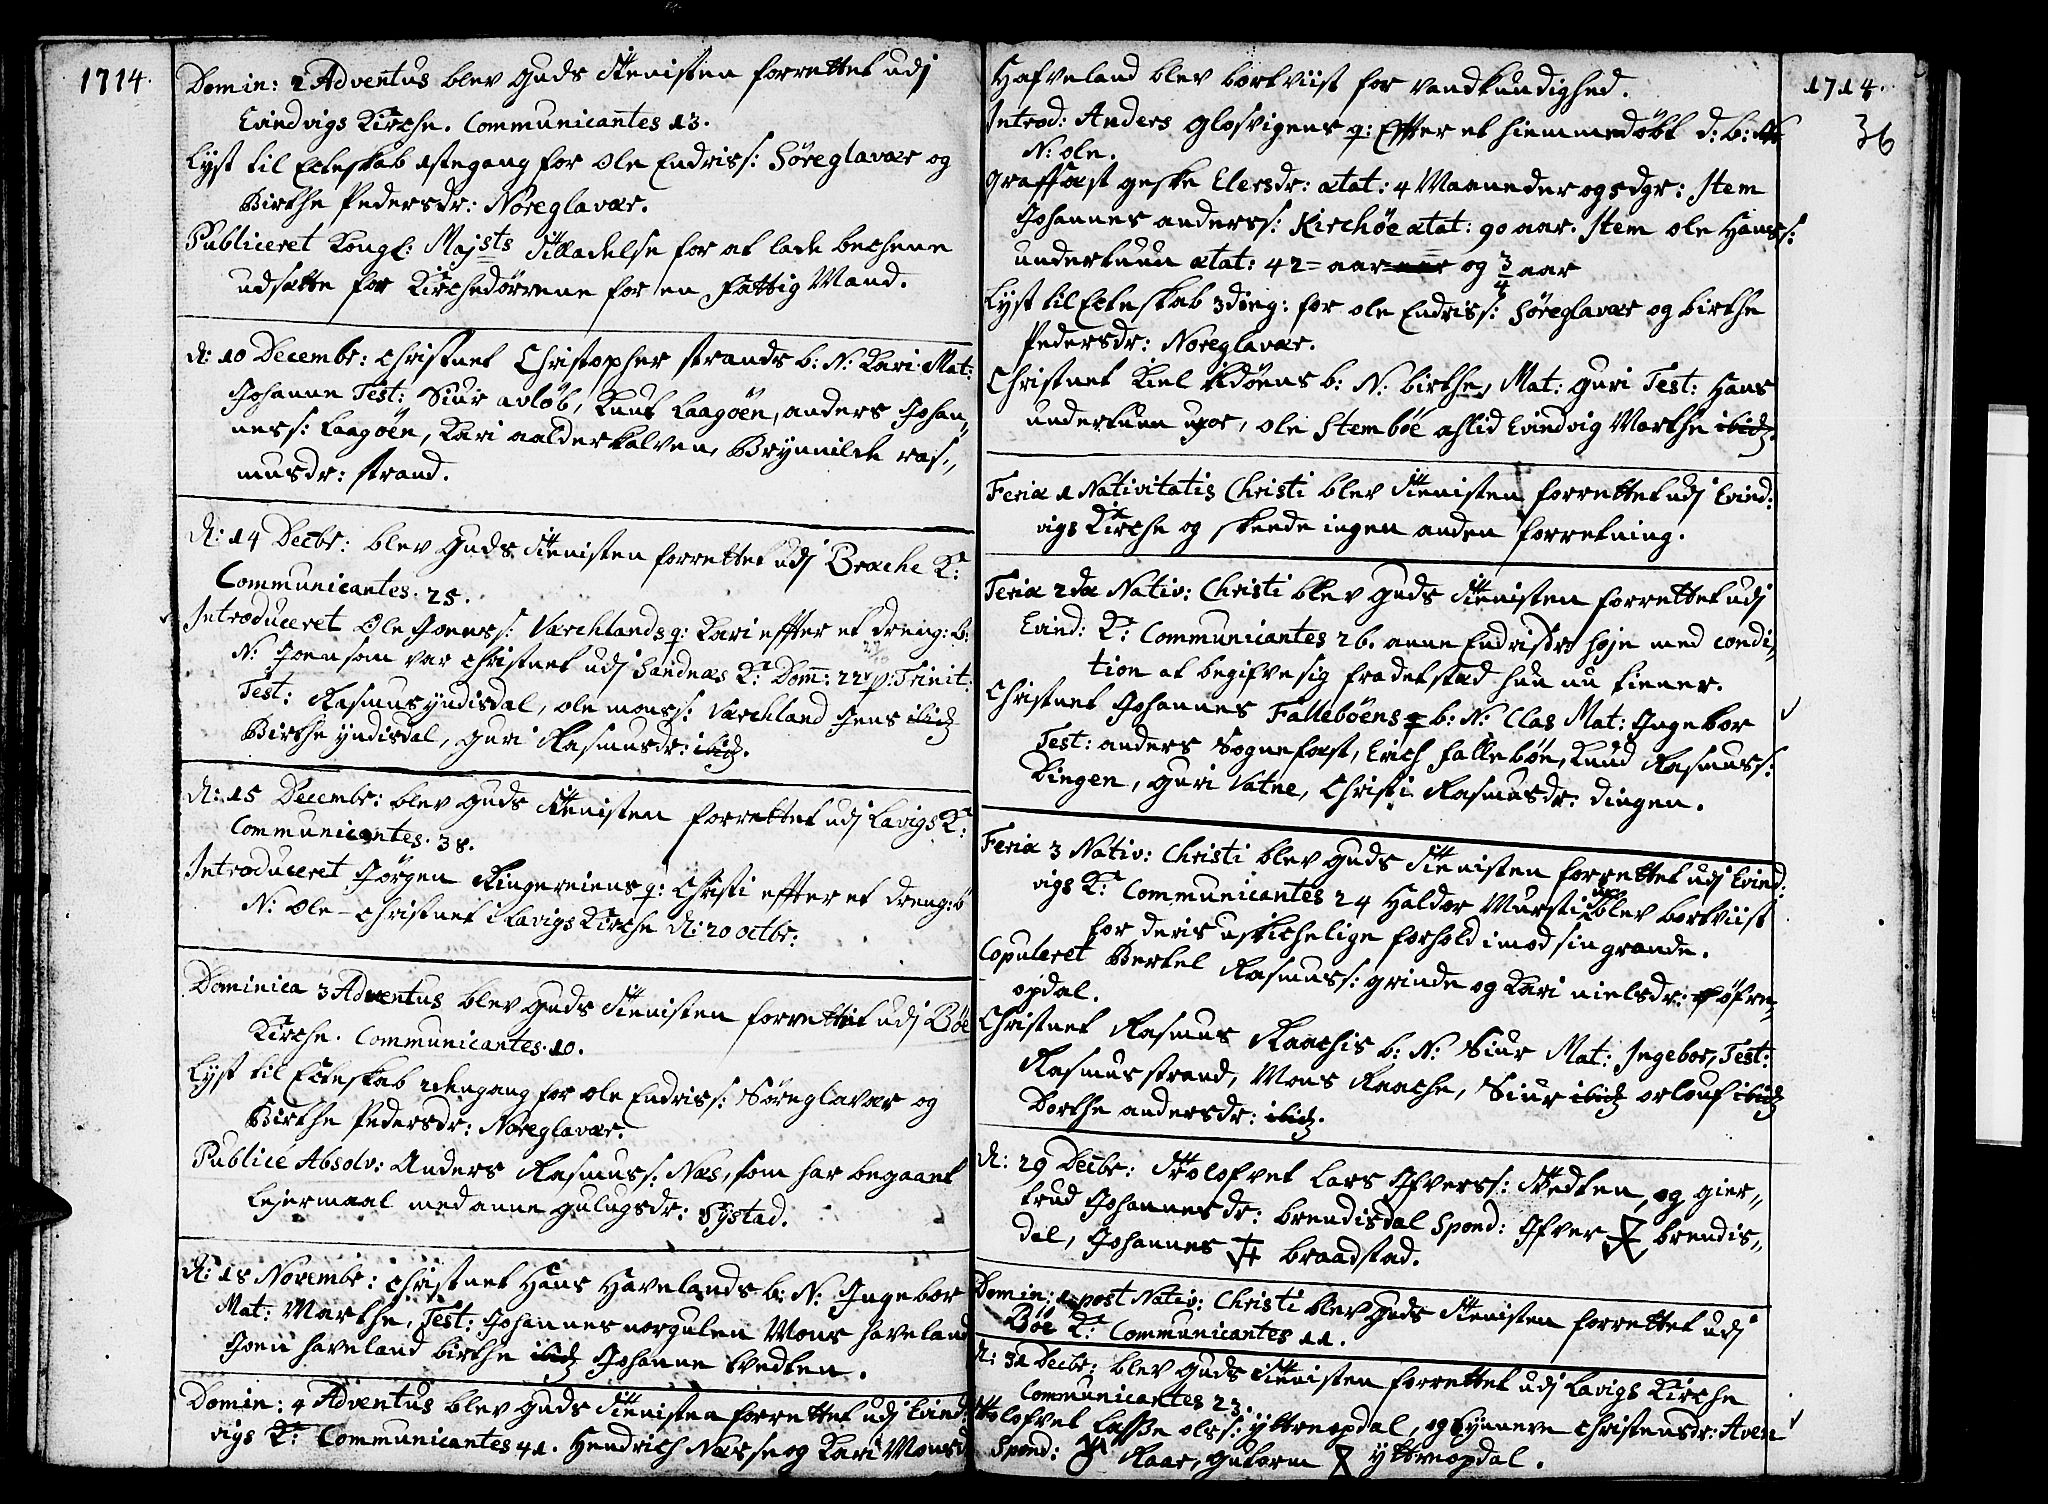 1714.
Domin: 2 Adventus blev Guds Tienisten forrettet udj
Evindvigs Kirche. Communicantes 13.
Lyst til Ecteskab 1stegang for Ole Endriss: Søreglavær og
Birthe Pedersdr: Nøreglavær.
Publiceret Kongl: Majsts Tilladelse for at lade bechene
udsætte for Kirchedørrene for en fattig Mand.
d: 10 Decembr: christnet Christopher Strands b: N: Kari Mat:
Johanne Test: Siur avløb, Knut Laagøen, anders Johan,,
ness: Laagøen, Kari aalderkalven, Brynnilde ras,,
musdr: strand.
d: 14 Decbr: blev Guds Tienisten forrettet udj Bræche K:
Communicantes. 25.
Introduceret Ole Joenss: Værchlands q: Kari effter et dreng: b:
N: Joen som var christnet udj Sandnæs K: Dom: 22 p: Trinit:
Test: Rasmus yndisdal, ole monss: Værchland Jens ibid
Birthe yndisdal, guri Rasmusdr: ibid.
d: 15 Decembr: blev Guds Tienisten forrettet udj Lavigs K:
Communicantes. 38.
Introduceret Jørgen Ringereiens q: Christi effter et dreng: b
N: Ole - christnet i Lavigs Kirche d: 20 octbr:
Dominica 3 Adventus blev Guds Tienisten forrettet udj Bøe
Kirche. Communicantes. 10.
Lyst til Ecteskab 2den gang for ole Endriss: Søreglavær og
Birthe Pedersdr: Nøreglavær.
Publicé Absolv: Anders Rasmuss: Næs, som har begaaet
Lejermaal med anne gulugsdr: Systad.
d: 18 Novembr: christnet Hans Havelands b: N: Ingebor
Mat: Marthe, Test: Johannes norgulen Mons haveland
Joen haveland birthe ibid Johanne tvedten.
Domin: 4 Adventus blev Guds Tienisten forrettet udj Evind:
vigs K: Communicantes 41. Hendrich Næsse og Kari Monsd
1714.
36
Hafveland blev bortviist for vandkundighed.
Introd: Anders Glosvigens q: Effter et hiemmedøbt d: b:
N: ole.
Graffæst geske Elersdr: ætat: 4 Maaneder og 5 dgr: Item
Johannes anderss: Kirchøe ætat: 90 aar. Item ole Hanss:
undertuun ætat: 42 = aar og 3/4 aar
Lyst til Ecteskab 3die g: for ole Endriss: Søreglavær og birthe
Pedersdr: Nøreglavær.
Christnet Kiel Eidøens b: N: birthe, Mat: guri Test: Hans
undertuun uxor, ole Stembøe astid Evindvig Marthe ibid.
Feria 1 Nativitatis Christi blev Tienisten forrettet udj Evind:
vigs Kirche og skeede ingen anden forretning.
Feria 2dæ Nativ: Christi blev Guds Tienisten forrettet udj
Evind: K: Communicantes 26. anne Endrisdr høje med condi,,
tion at begifve sig fra det stæd hun nu tiener.
Christnet Johannes Fallebøens b: N: Clas Mat: Ingebor
Test: anders Sognefæst, Erich fallebøe, Knud Rasmuss:
Dingen, guri Vatne, Christi Rasmusdr: dingen.
Feria 3 Nativ: Christi blev Guds Tienisten forrettet udj Evind:
vigs K: Communicantes 24 Haldor Mursti blev bortviist
for deris uskichelige forhold imod sin grande.
Copuleret Bertel Rasmuss: grinde og Kari nielsdr: øfre,,
opdal.
Christnet Rasmus Raachis b: N: Siur Mat: Ingebor, Test:
Rasmus strand, Mons Raache, Siur ibid orlouf ibid
Dorthe andersdr: ibid.
d: 29 Decbr: Trolofvet Lars Ifverss: Tvedten, og gier,,
trud Johannesdr: brendisdal Spond: Ifver brendis,,
dal, Johannes braadstad.
Domin: 1 post Nativ: Christi blev Guds Tienisten forrettet udj
Bøe K: Communicantes 11.
d: 31 Decbr: blev Guds Tienisten forrettet udj Lavigs Kirche
Communicantes 23.
Trolofvet Lasse olss: yttreopdal, og Synneve Christensdr: Aven
Spond: Raar, gutorm yttreopdal.